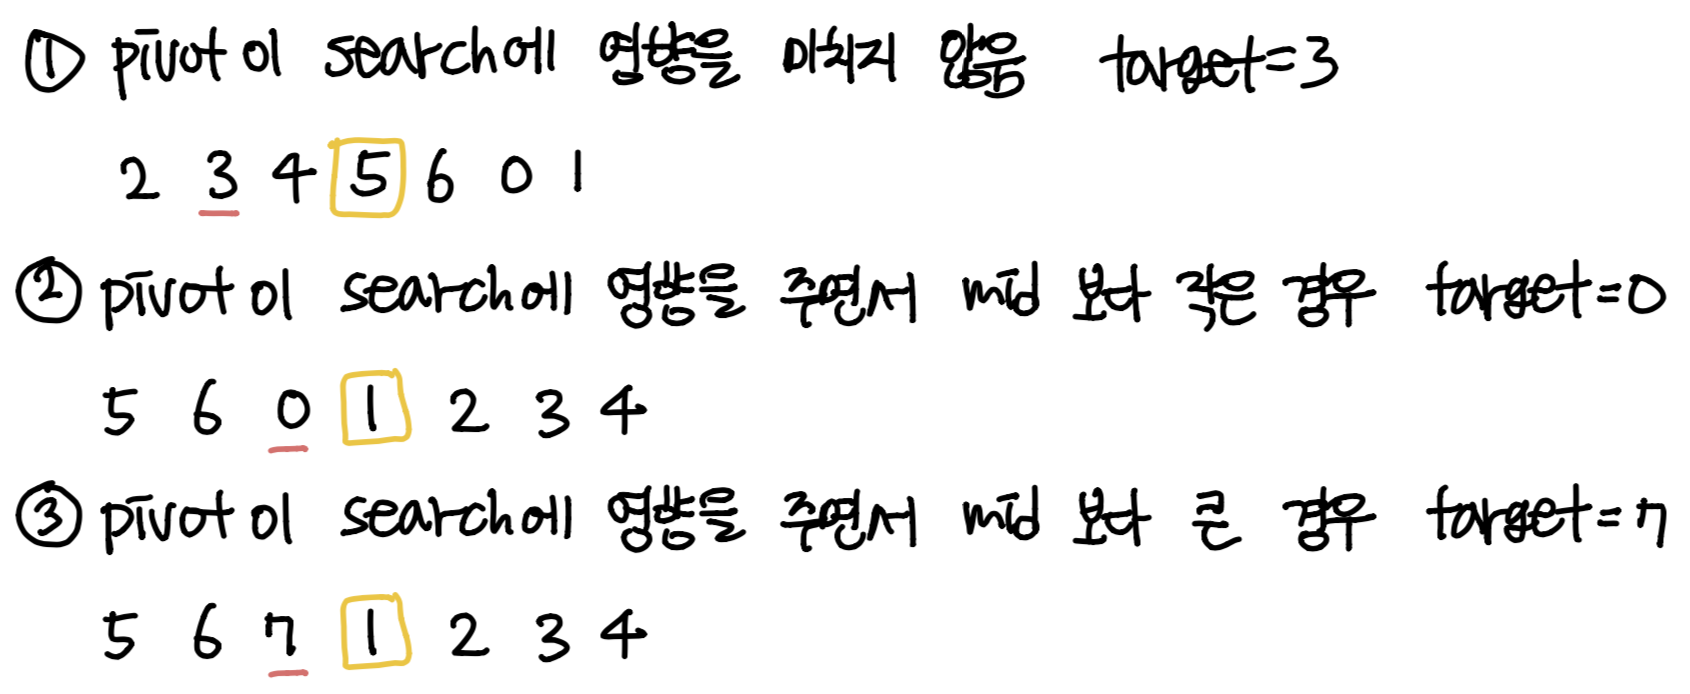 ① pivot이 search에 영향을 미치지 않음 target=3
2 3 4 5 6 0 1
② pivot이 search에 영향을 주면서 mid 보다 작은 경우 target=0
5 6 0 1 2 3 4
③ pivot이 search에 영향을 주면서 mid 보다 큰 경우 target=7
5 6 7 1 2 3 4